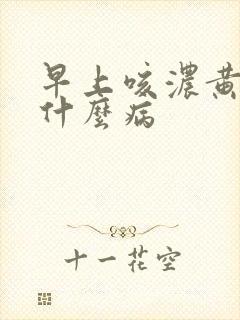 早上咳濃黃
什麼病
十一花空